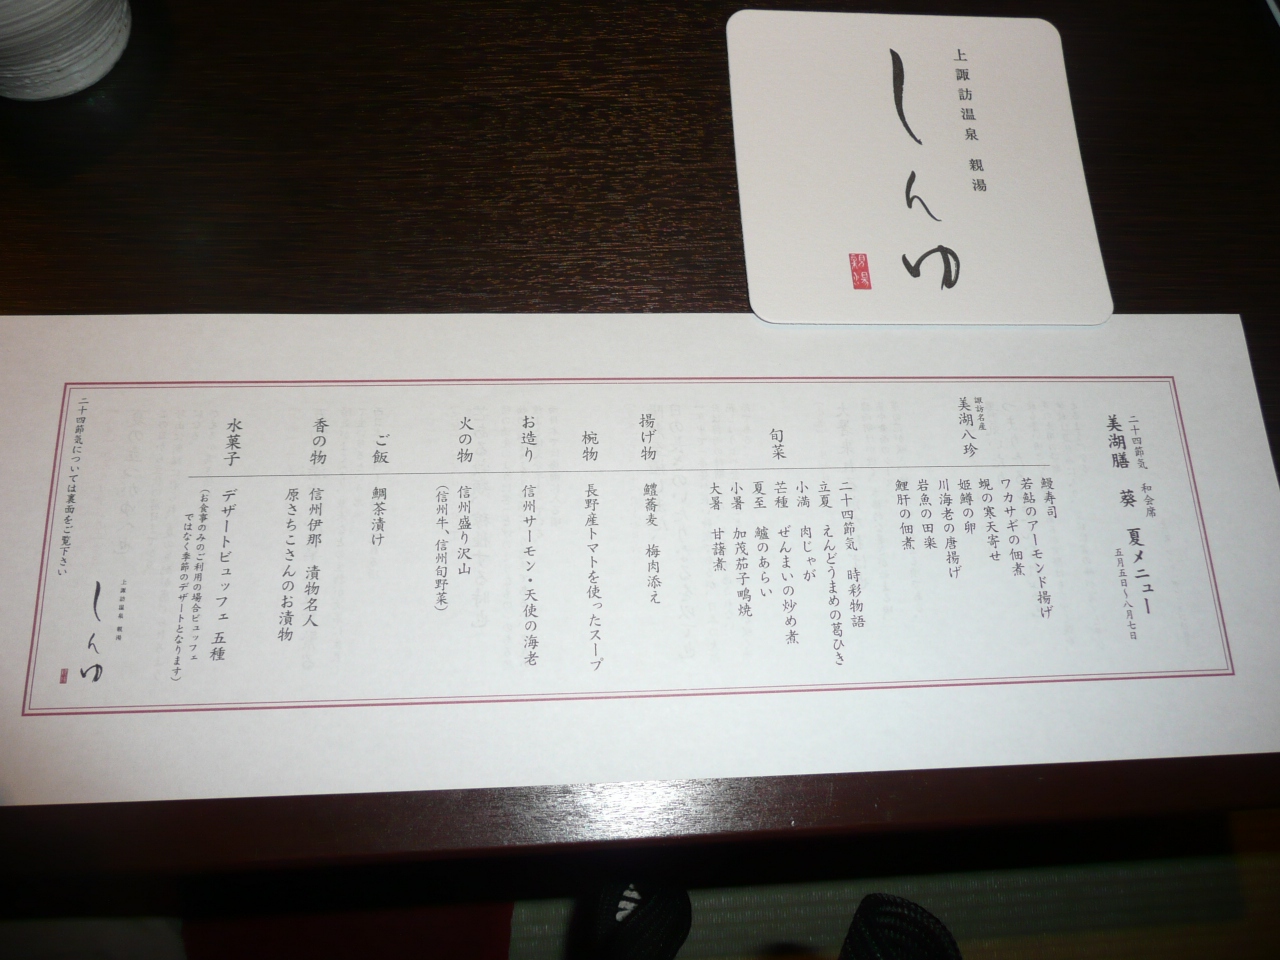 上諏訪温泉 親湯
しんゆ
親湯
二十四節気 和会席
美湖膳 葵 夏メニュー
五月五日〜八月七日
諏訪名産
美湖八珍
鰻寿司
若鮎のアーモンド揚げ
ワカサギの佃煮
蜆の寒天寄せ
姫鱒の卵
川海老の唐揚げ
岩魚の田楽
鯉肝の佃煮
旬菜
二十四節気 時彩物語
立夏 えんどうまめの葛ひき
小満 肉じゃが
芒種 ぜんまいの炒め煮
夏至 鱸のあらい
小暑 加茂茄子鴫焼
大暑 甘藷煮
揚げ物
鱧蕎麦 梅肉添え
椀物
長野産トマトを使ったスープ
お造り
信州サーモン・天使の海老
火の物
信州盛り沢山
（信州牛、信州旬野菜）
ご飯
鯛茶漬け
香の物
信州伊那 漬物名人
原さちこさんのお漬物
水菓子
デザートビュッフェ 五種
（お食事のみのご利用の場合ビュッフェ
ではなく季節のデザートとなります）
上諏訪温泉 親湯
しんゆ
二十四節気については裏面をご覧下さい